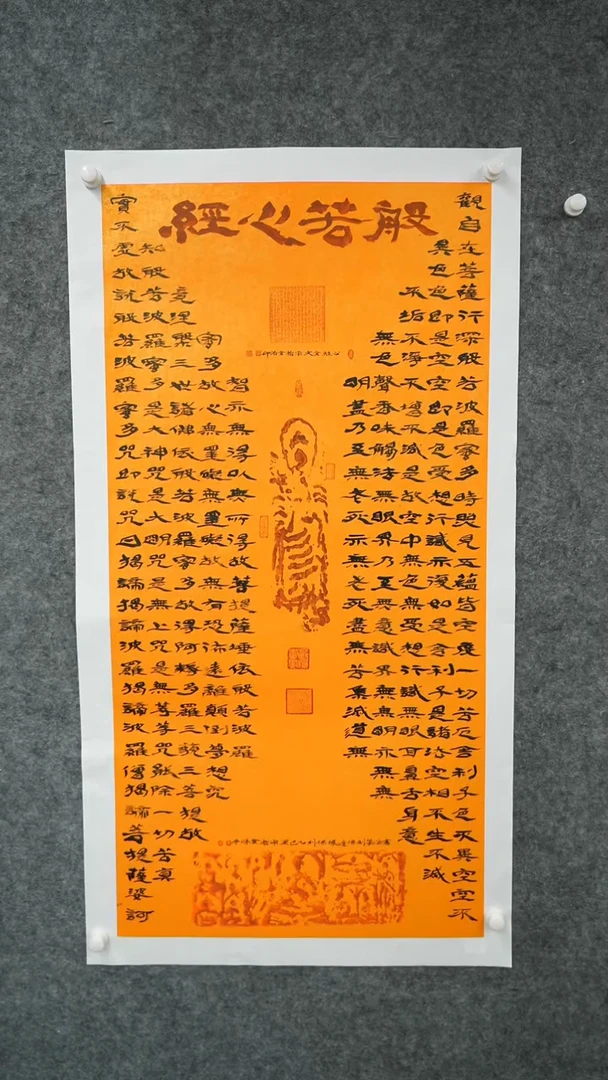 般若心經
觀自在菩薩行深般若波羅蜜多時照見五蘊皆空度一切苦厄舍利子色不異空空不
異色色即是空空即是色受想行識亦復如是舍利子是諸法空相不生不滅
不垢不淨不增不減是故空中無色無受想行識無眼耳鼻舌身意
無色聲香味觸法無眼界乃至無意識界無無明亦無無
明盡乃至無老死亦無老死盡無苦集滅道無
智亦無得以無所得故菩提薩埵依般若波羅
蜜多故心無罣礙無罣礙故無有恐怖遠離顛倒夢想究
竟涅槃三世諸佛依般若波羅蜜多故得阿耨多羅三藐三菩提故
知般若波羅蜜多是大神咒是大明咒是無上咒是無等等咒能除一切苦真
實不虛故說般若波羅蜜多咒即說咒曰揭諦揭諦波羅揭諦波羅僧揭諦菩提薩婆訶